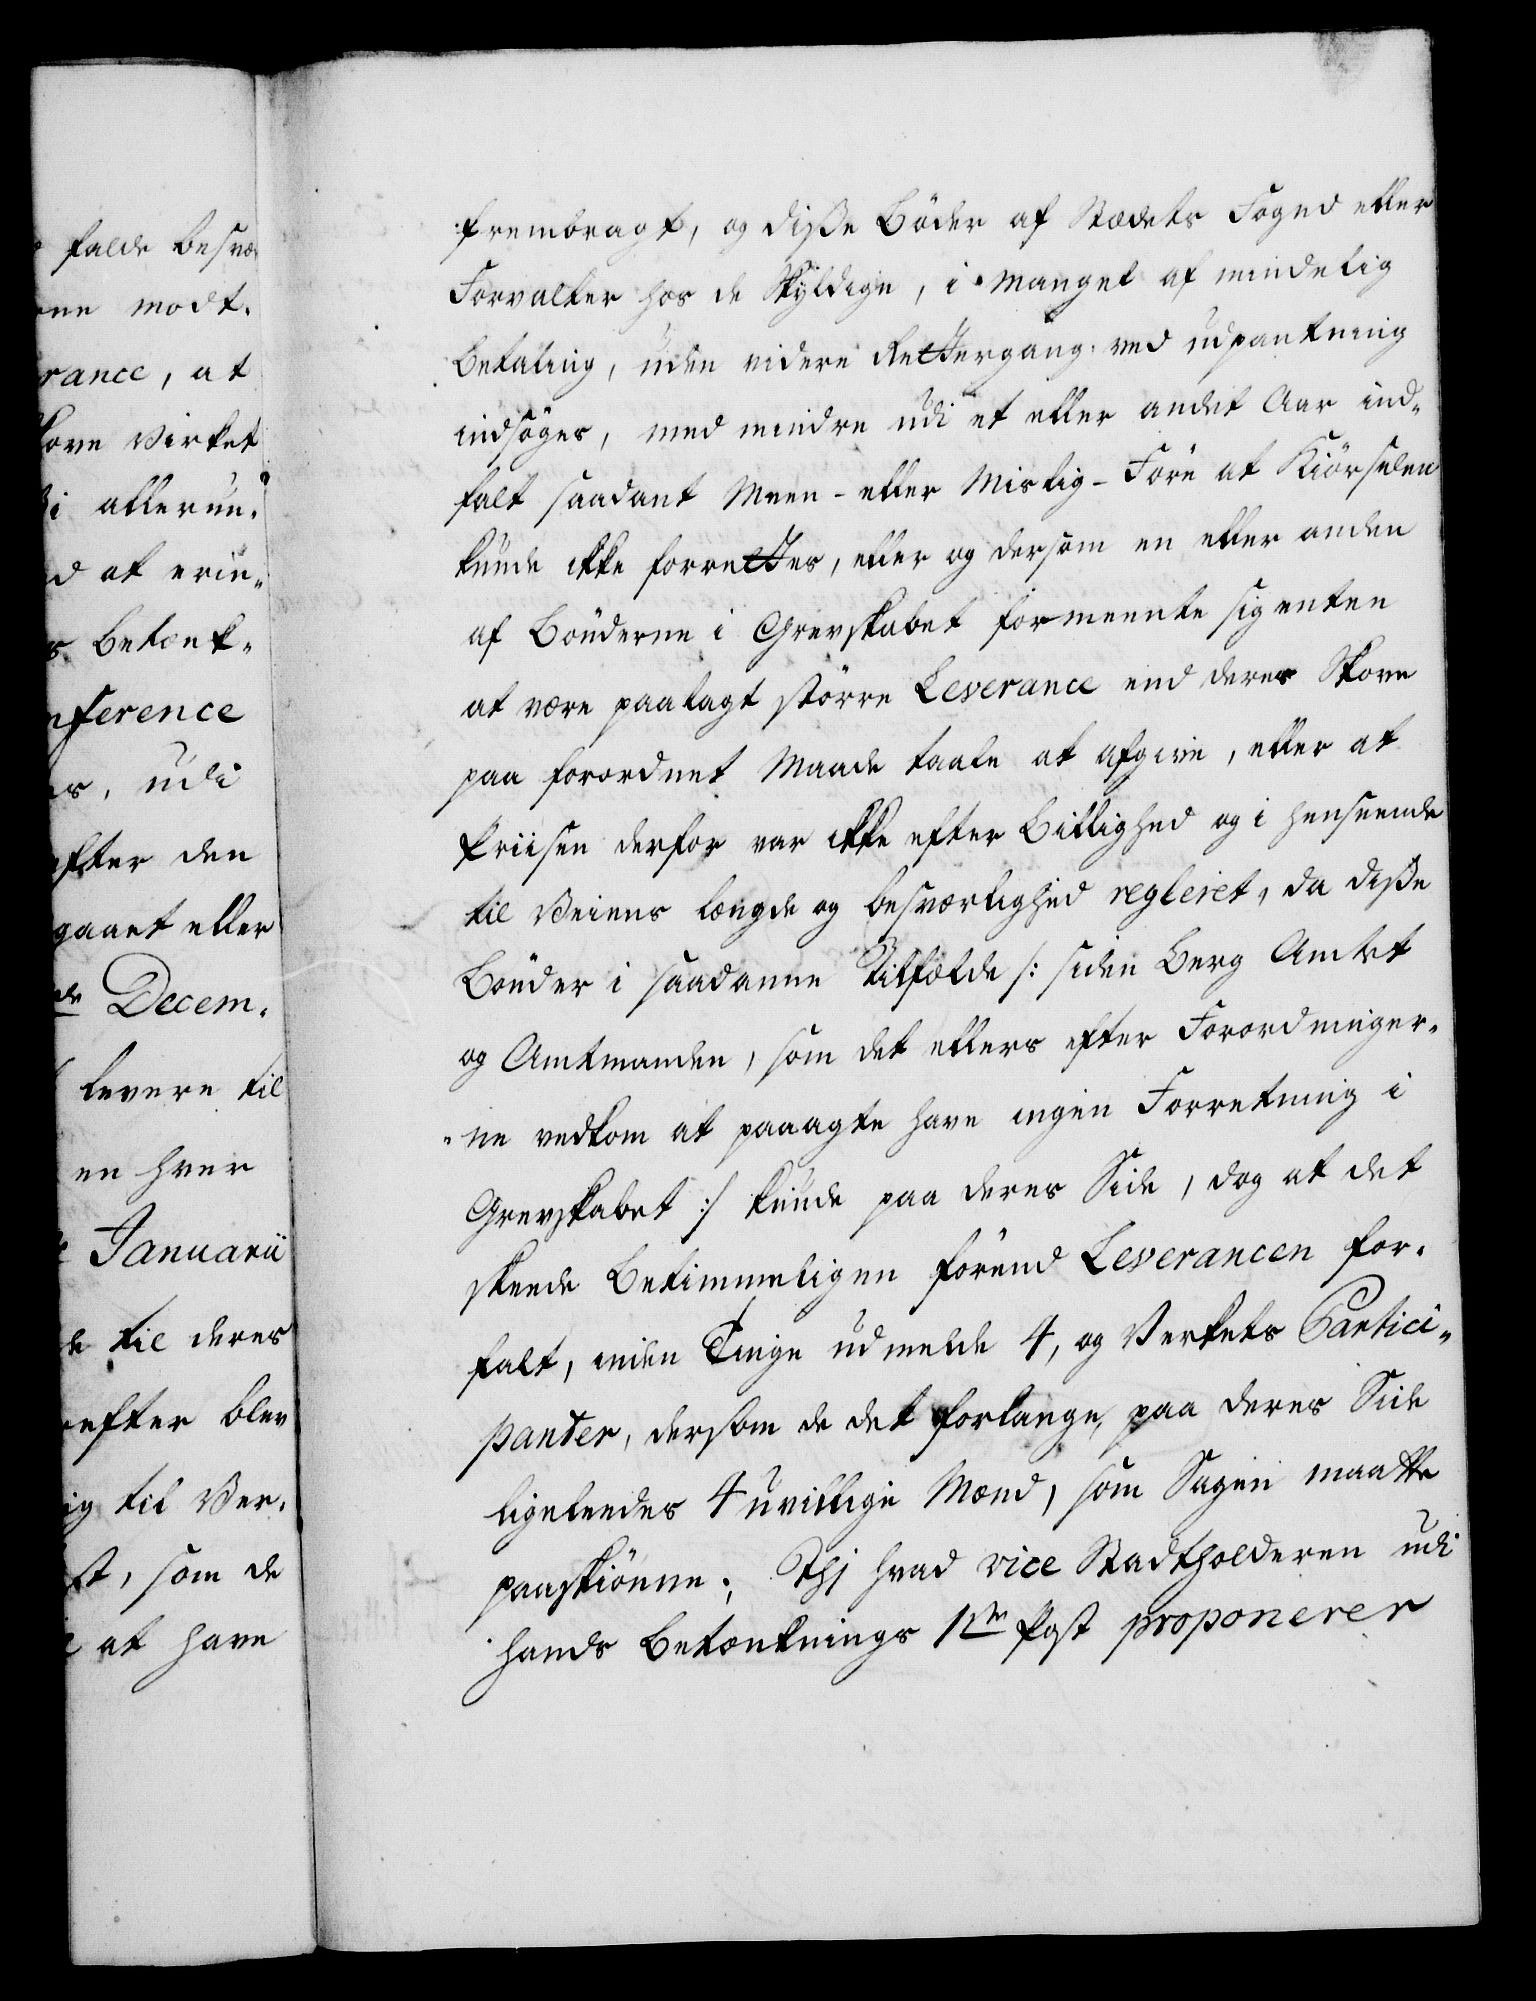 falde besvæ
ne modt.
rance, at
kove Virket
i allerun.
d at erin-
s Betænk-
nference
es, udi
efter den
gaaet eller
de Decem.
levere til
en hver
Januarii
til deres
efter blev
ig til Ver.
st, som de
at have
frembragt, og disse Bøder af Stædets Foged eller
Forvalter hos de Skyldige, i Mangel af mindelig
Betaling, uden videre Rettergang ved udpantning
indsøges, med mindre udi et eller andet Aar ind-
falt saadant Meen- eller Mislig- Føre at Kiørselen
kunde ikke forrettes, eller og dersom en eller anden
af Bønderne i Grevskabet formeente sig enten
at være paalagt større Leverance end deres Skove
paa forordnet Maade taale at afgive, eller at
Priisen derfor var ikke efter Billighed og i henseende
til Veiens længde og besværlighed regleret, da disse
Bønder i saadanne Tilfælde /: siden Berg Amtet
og Amtmanden, som det ellers efter Forordninger-
-ne vedkom at paaagte have ingen Forretning i
Grevskabet :/ kunde paa deres Side, dog at det
skeede Betimmeligen førend Leverancen for-
falt, inden Tinge udmelde 4, og Verkets Partici-
panter, dersom de det forlange, paa deres Side
ligeleedes 4 uvillige Mænd, som Sagen maatte
paaskiønne; Thj hvad vice Stadtholderen udi
hands Betænknings 1ste Post proponerer